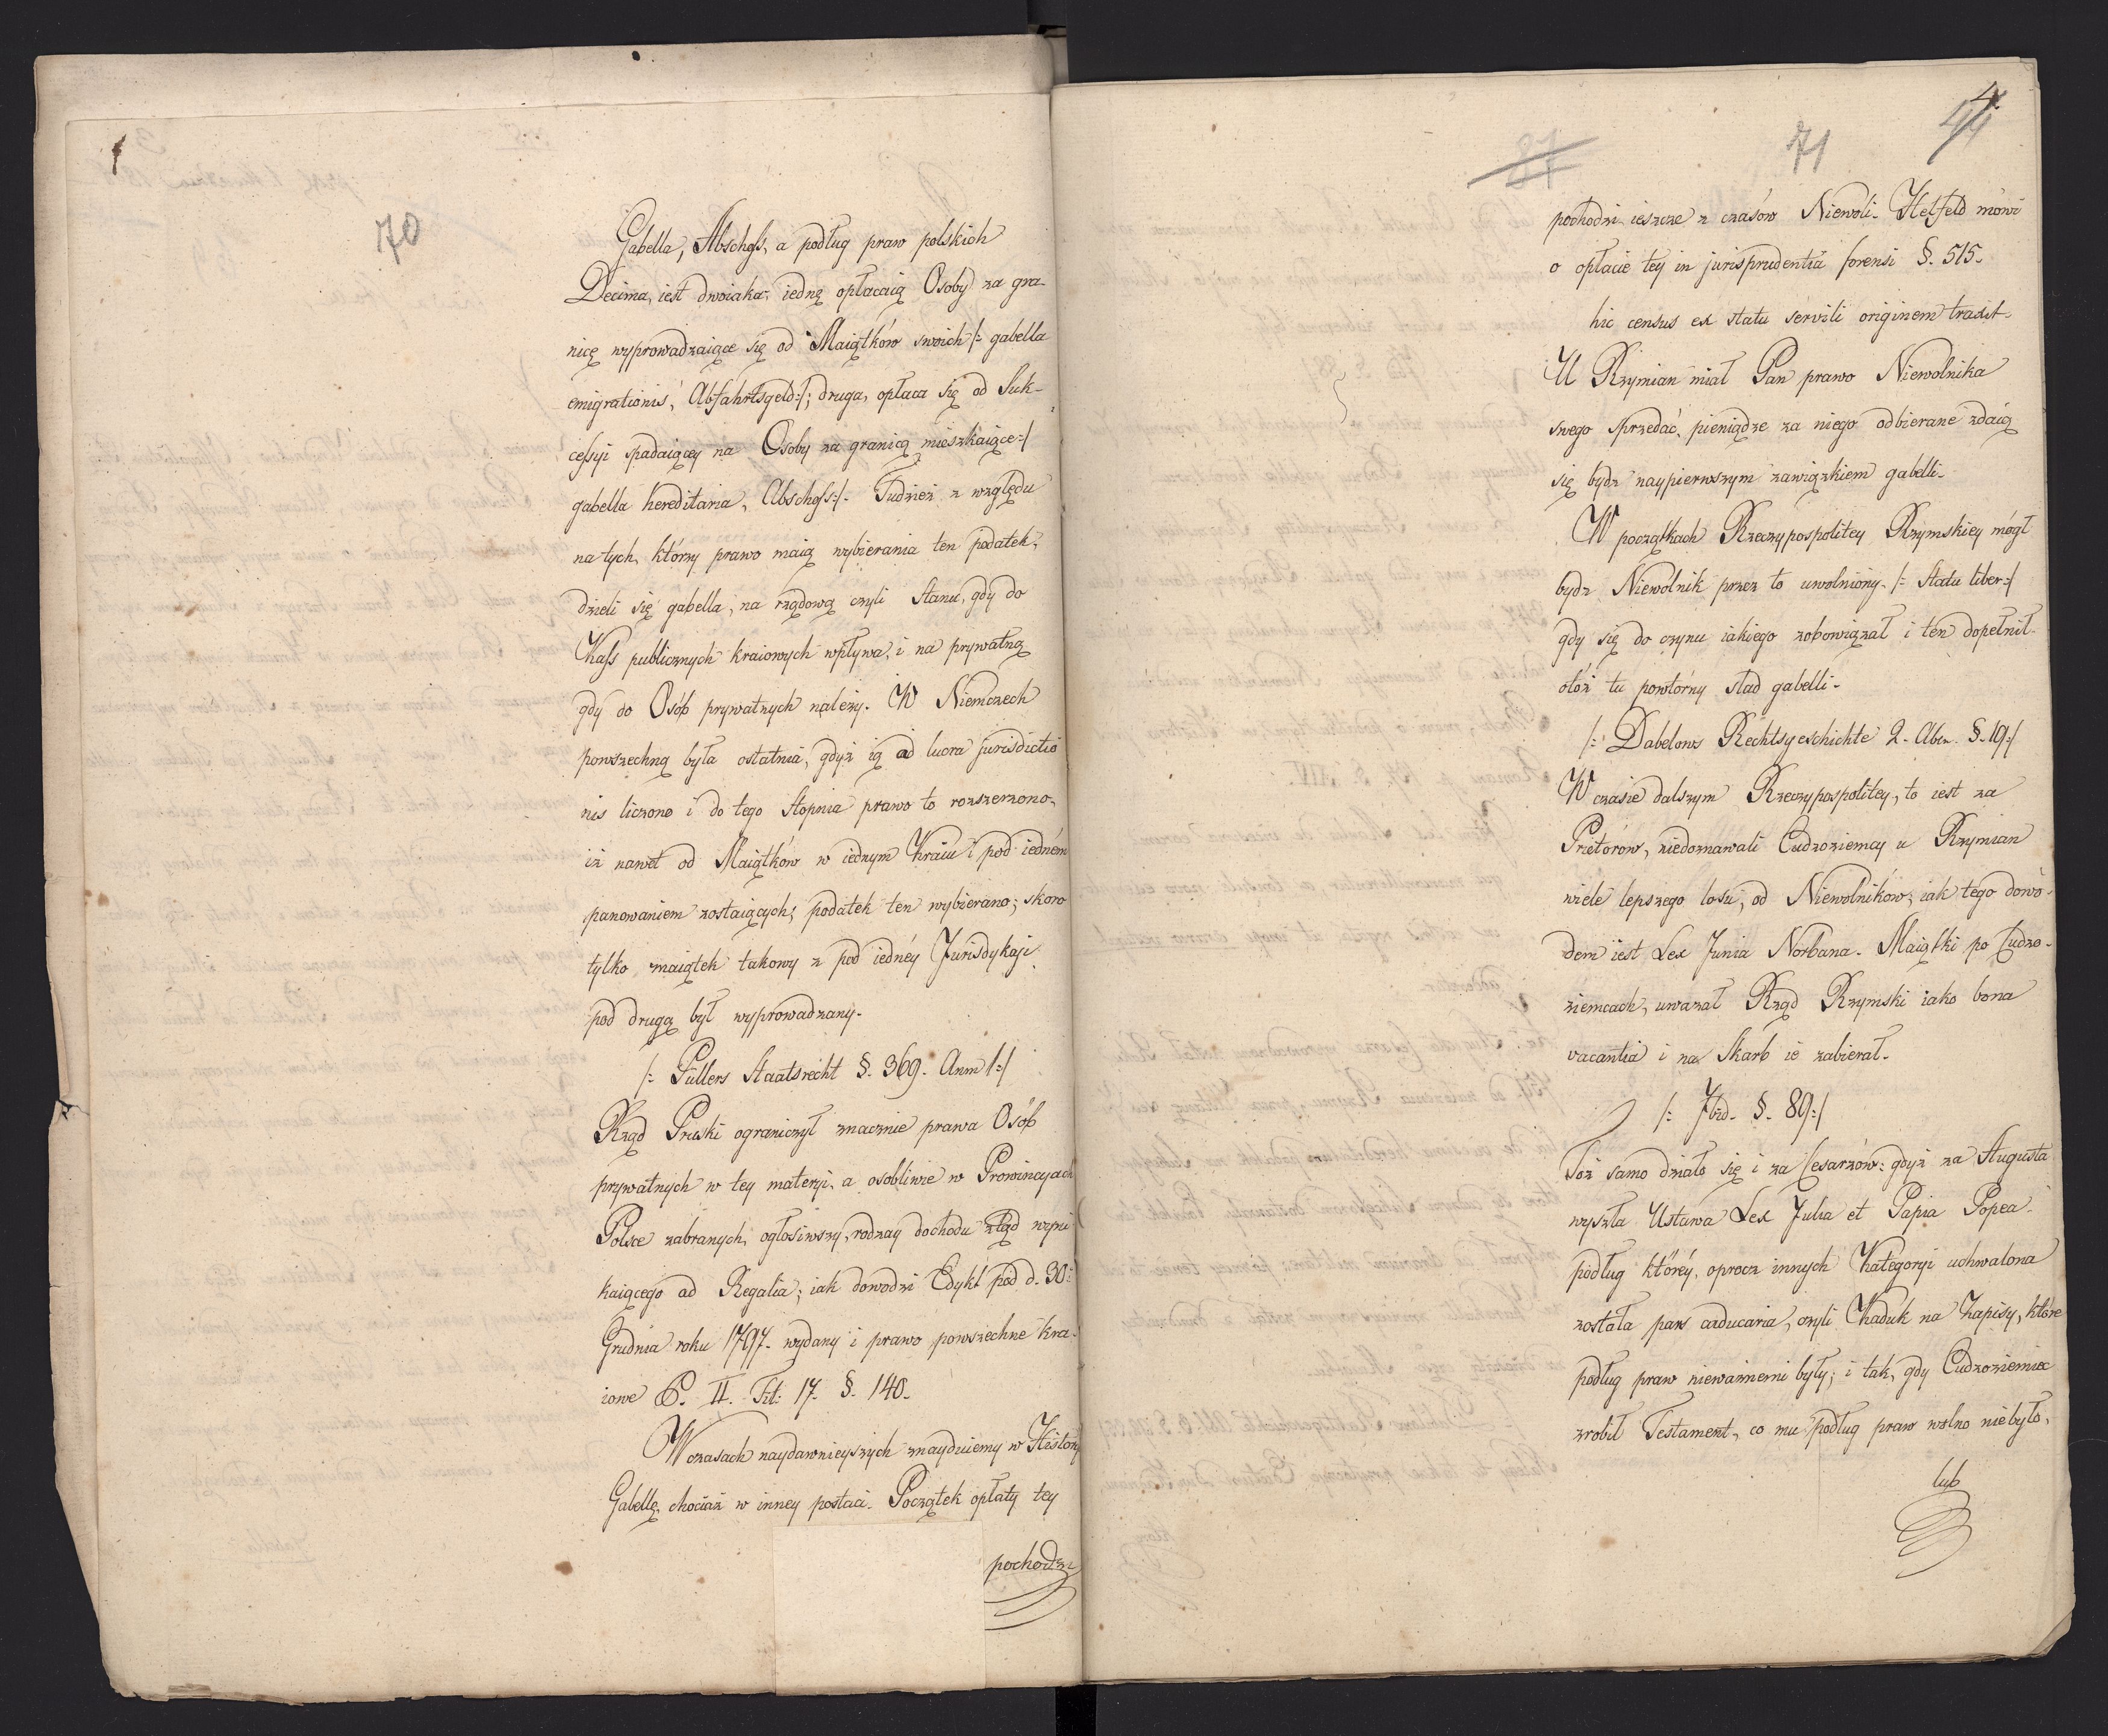 70
Gabella, Abschoß, a podług praw polskich
Decima, iest dwoiaka; iednę opłacaią Osoby za gra-
nicę wyprowadzaiące się od Maiątków swoich /: gabella
emigrationis, Abfahrtsgeld :/; druga, opłaca się od Suk-
ceßyi spadaiącey na Osoby za granicą mieszkaiące :/
gabella hereditaria, Abschoß :/. Tudzież z względu
na tych, którzy prawo maią wybierania ten podatek,
dzieli się gabella, na rządową czyli Stanu, gdy do
Kaß publicznych kraiowych wpływa, i na prywatną
gdy do Osób prywatnych należy. W Niemczech
powszechną była ostatnia, gdyż ią ad lucra jurisdictio
nis liczono i do tego Stopnia prawo to rozszerzono,
iż nawet od Maiątków w iednym Kraiu i pod iedném
panowaniem zostaiących, podatek ten wybierano; skoro
tylko maiątek takowy z pod iednéy Jurisdykcji
pod drugą był wyprowadzany.
/: Pütters Staatsrecht §. 369. Anm 1 :/
Rząd Pruski ograniczył znacznie prawa Osób
prywatnych w tey materyi, a osobliwie w Prowincyach
Polsce zabranych, ogłosiwszy, rodzay dochodu ztąd wyni
kaiącego ad Regalia; iak dowodzi Edykt pod d. 30:
Grudnia roku 1797. wydany i prawo powszechne kra-
iowe P. II. Tit: 17. §. 140.
W czasach naydawnieyszych znayduiemy w History
Gabellę, chociaż w inney postaci. Początek opłaty tey
pochodzi
4.
44
71
27
pochodzi ieszcze z czasów Niewoli. Helfeld mówi
o opłacie tey in jurisprudentia forensi §. 515.
hic census ex statu servili originem traxit.
U Rzymian miał Pan prawo Niewolnika
swego sprzedać, pieniądze za niego odbierane zdaią
się bydz naypierwszym zawiązkiem gabelli.
W początkach Rzeczypospolitey Rzymskiey mógł
bydz Niewolnik przez to uwolniony /: Statu liber :/
gdy się do czynu iakiego zobowiązał i ten dopełnił
otóż tu powtórny ślad gabelli.
/: Dabelows Rechtsgeschichte 2. Abs. §. 19 :/
W czasie dalszym Rzeczypospolitey, to iest za
Pretorów, niedoznawali Cudzoziemcy u Rzymian
wiele lepszego losu, od Niewolników; iak tego dowo-
dem iest Lex Junia Norbana. Maiątki po Cudzo-
ziemcach, uważał Rząd Rzymski iako bona
vacantia i na Skarb ie zabierał.
/: Ibid. §. 89 :/
Toż samo działo się i za Cesarzów: gdyż za Augusta
wyszła Ustawa Lex Julia et Papia Popea
podług któréy, oprocz innych Kategoryi uchwalona
została pars caducaria, czyli Kaduk na Zapisy, które
podług praw nieważnemi były; i tak, gdy Cudzoziemiec
zrobił Testament, co mu podług praw wolno niebyło,
lub